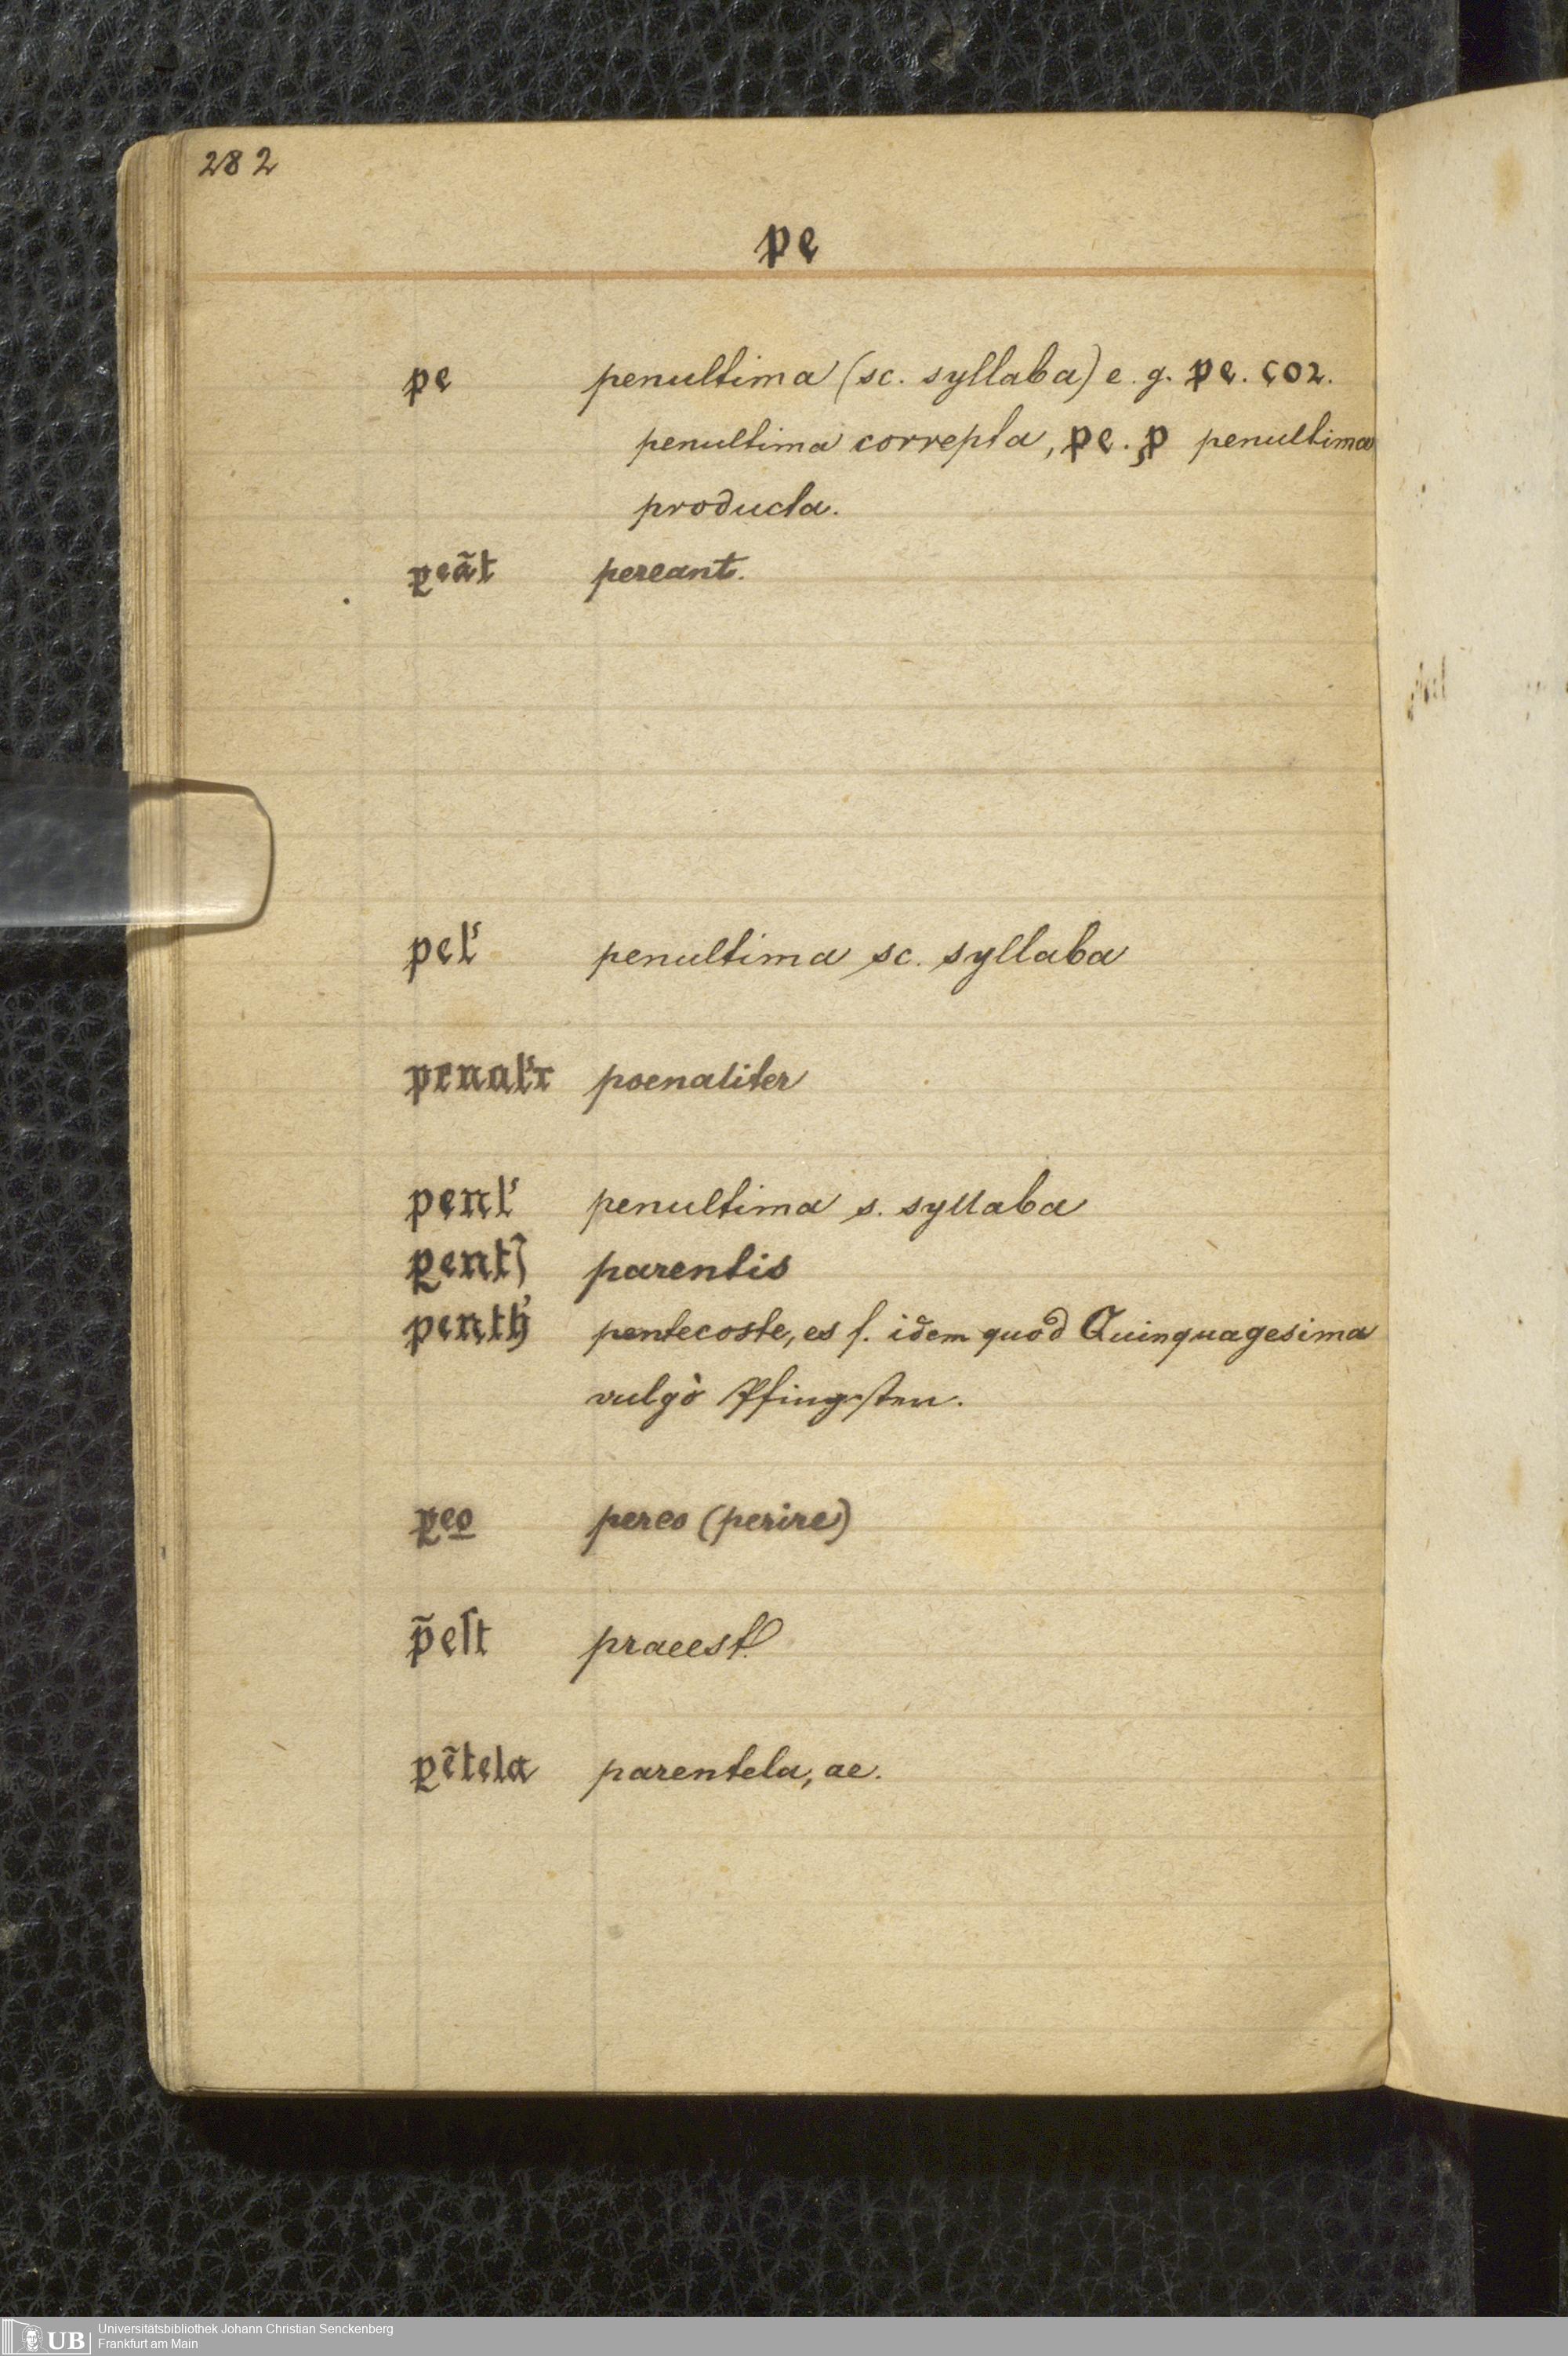 282
pe
pe penultima (sc. syllaba) e. g. pe. coꝛ.
penultima correpta, pe. ꝓ penultima
producta.
ꝑeãt pereant.
pel' penultima sc. syllaba
penal'r poenaliter
penl' penultima s. syllaba
ꝑentꝭ parentis
penth' pentecoste, es f. idem quod Quinquagesima
vulgò Pfingsten.
ꝑeo pereo (perire)
p̃eſt praeest.
ꝑẽtela parentela, ae.
UB Universitätsbibliothek Johann Christian Senckenberg
Frankfurt am Main